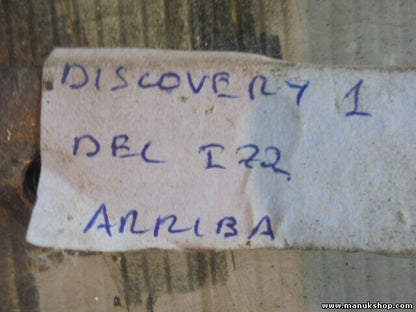 DISCOVERY 1
DEL IZQ.
ARRIBA
www.manukshop.com